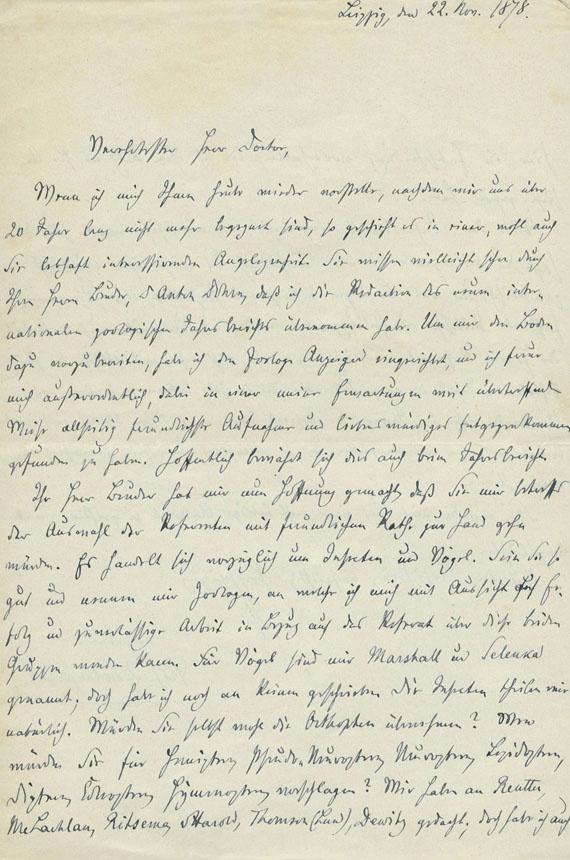 Leipzig, den 22. Nov. 1878.
Verehrtester Herr Doctor,
Wenn ich mich Ihnen heute wieder vorstelle, nachdem wir uns über
20 Jahre lang nicht mehr begegnet sind, so geschieht es in einer, wohl auch
Sie lebhaft interessirenden Angelegenheit. Sie wissen vielleicht schon durch
Ihren Herrn Bruder, Dr Anton Dohrn, daß ich die Redaction des neuen inter-
nationalen zoologischen Jahresberichts übernommen habe. Um mir den Boden
dazu vorzubereiten, habe ich den Zoolog. Anzeiger eingerichtet, und ich freue
mich außerordentlich, dabei in einer meine Erwartungen weit übertreffenden
Weise allseitig freundlichste Aufnahme und liebenswürdiges Entgegenkommen
gefunden zu haben. Hoffentlich bewährt sich dies auch beim Jahresbericht.
Ihr Herr Bruder hat mir nun Hoffnung gemacht, daß Sie mir betreffs
der Auswahl der Referenten mit freundlichem Rathe zur Hand gehn
würden. Es handelt sich vorzüglich um Insecten und Vögel. Seien Sie so
gut und nennen mir Zoologen, an welche ich mich mit Aussicht auf Er-
folg und zuverlässige Arbeit in Bezug auf das Referat über diese beiden
Gruppen wenden kann. Für Vögel sind mir Marshall und Selenka
genannt; doch habe ich noch an keinen geschrieben. Die Insecten theilen wir
natürlich. Würden Sie selbst wohl die Orthoptern übernehmen? Wen
würden Sie für Hemiptern, Pseudo-Neuroptern, Neuroptern, Lepidoptern,
Diptern, Coleoptern, Hymenoptern vorschlagen? Wir haben an Reuter,
McLachlan, Ritsema, v Harold, Thomson (Lund), Dewitz gedacht, doch habe ich auch